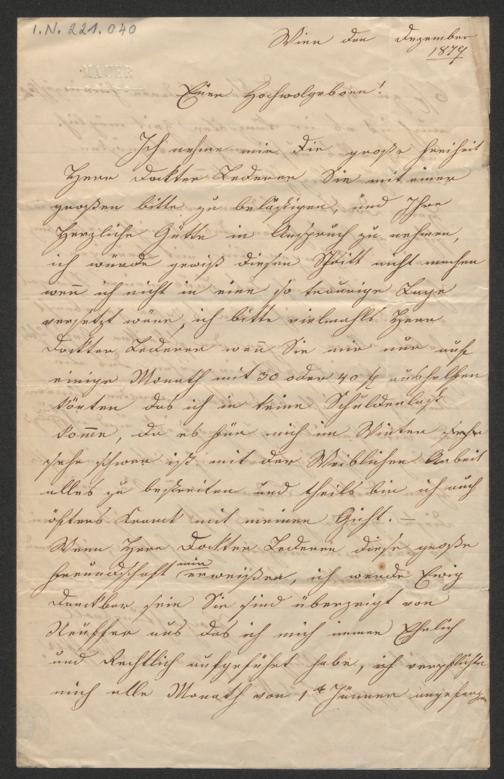 I.N. 221.040
Wien den Dezember
1879
MAYER
Euer Hochwolgeboren!
Ich nehme mir die große Freiheit
Herrn Dockter Lederer Sie mit einer
großen bitte zu belästigen, und Ihre
Herzliche Gütte in Anspruch zu nehmen,
ich würde gewiß diesen Schritt nicht machen
wen̄ ich nicht in eine so traurige Lage
versetzt wäre, ich bitte vielmahls Herrn
Dockter Lederer wen̄ Sie mir nur auf
einige Monath mit 30 oder 40 fl aushelfen
könten das ich in keine Schuldenlast
komme, da es für mich im Winter
sehr schwer ist mit der Weiblichen Arbeit
alles zu bestreiten und theils bin ich auch
öfters Kranck mit meinen Gicht. —
Wenn Herr Dockter Lederer diese große
Freundschaft mir erweisen, ich werde Ewig
Danckbar sein Sie sind überzeigt von
aus das ich mich immer Ehrlich
und Rechtlich aufgeführt habe, ich verpflichte
mich alle Monath von 1t Jänner angefangen